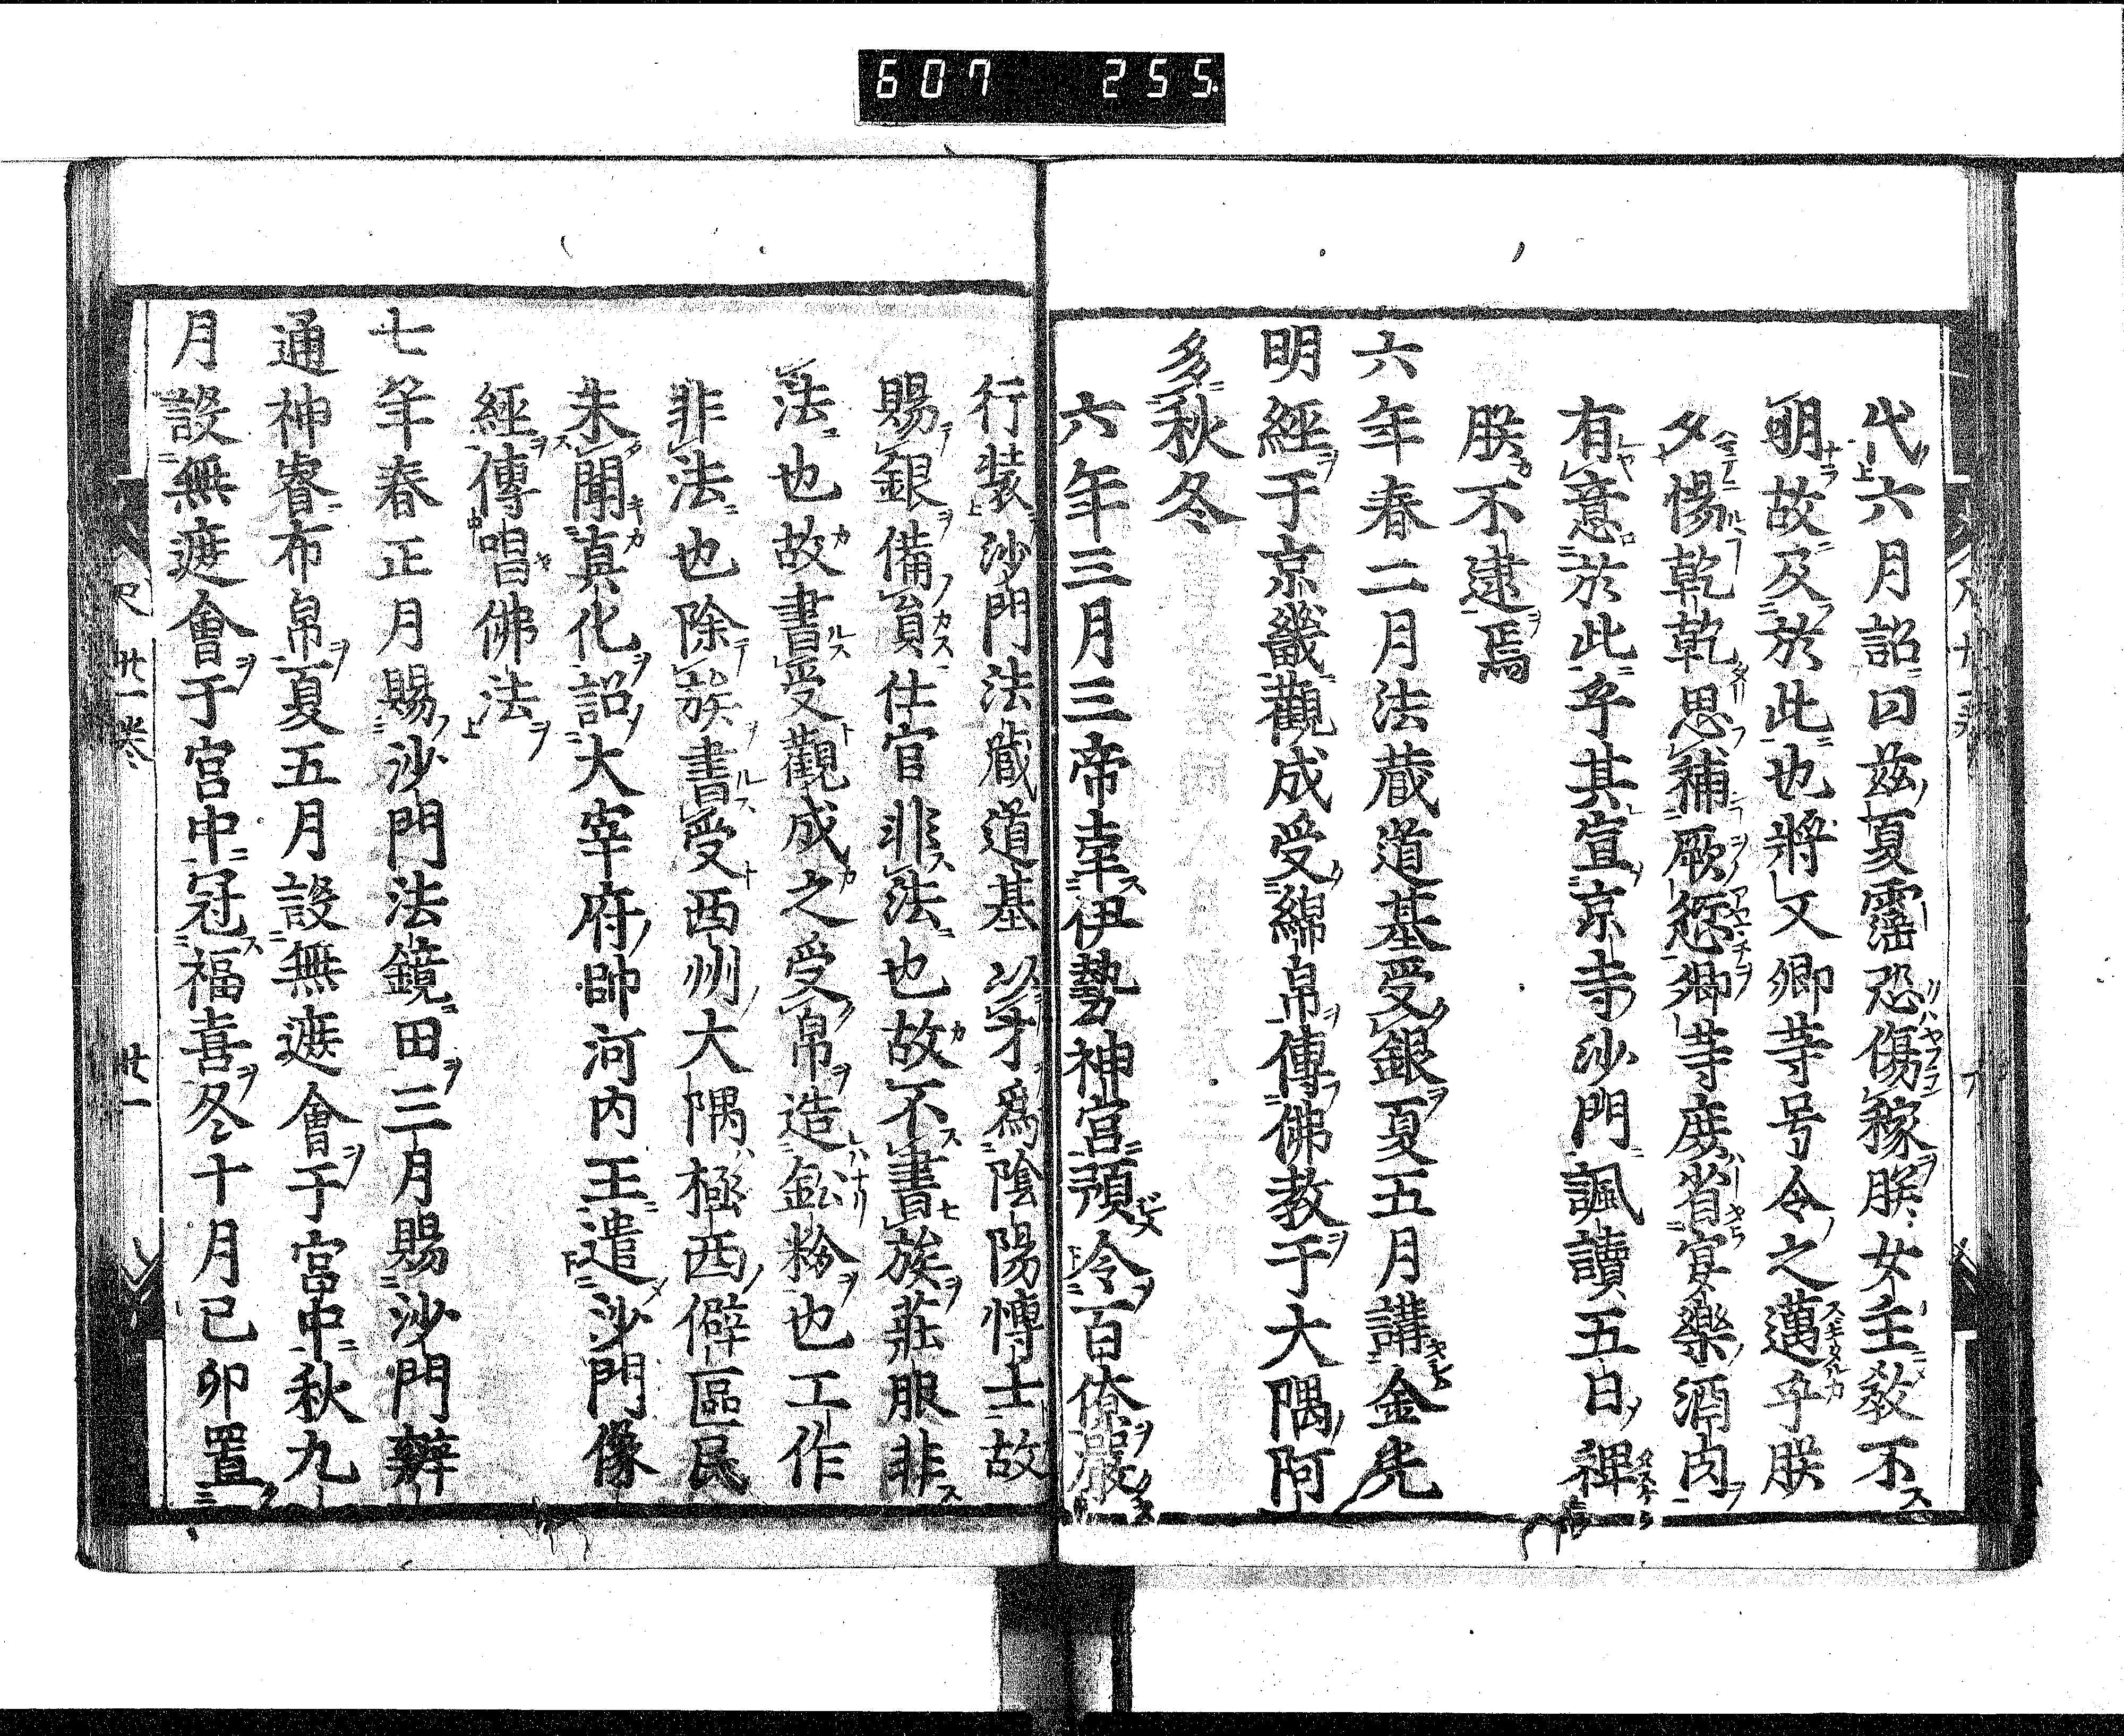 607 255
代六月詔曰茲夏霪恐傷稼朕女主教不
明故及於此也將又卿等号令之邁乎朕
夕惕乾乾思補厥愆卿等廢省宴樂酒肉
有意於此乎其宣京寺沙門諷讀五日裨
朕不逮焉
六年春二月法蔵道基受銀夏五月講金先
明經于京畿觀成受綿帛傳佛教于大隅阿
多秋冬
六年三月三帝幸伊勢神宮預令百僚嚴
行裝沙門法蔵道基以才爲陰陽博士故
賜銀備員仕官非法也故不書族莊服非
法也故書受觀成之受帛造鈆粉也工作
非法也除族書受西州大隅極西僻區民
未聞真化詔大宰府帥河内王遣沙門像
經傳唱佛法
七年春正月賜沙門法鏡田三月賜沙門辨
通神睿布帛夏五月設無遮會于宮中秋九
月設無遮會于宮中冠福喜冬十月己卯置
卅一